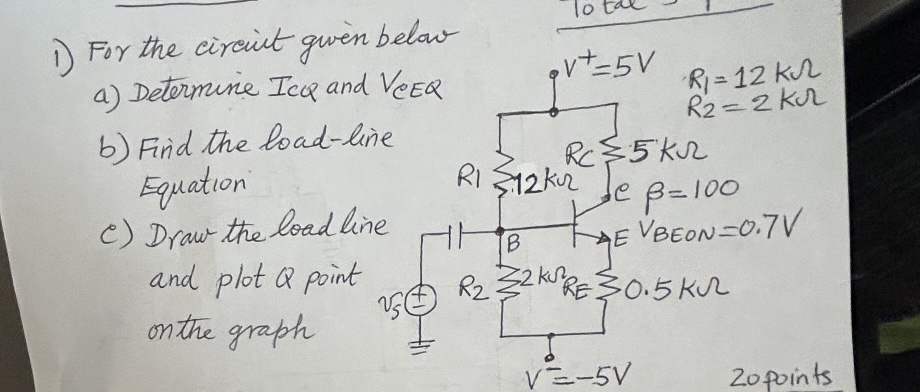 1) For the circuit given below
a) Determine ICQ and VCEQ
b) Find the load-line
Equation
c) Draw the load line
and plot Q point
on the graph
V+=5V
R1=12 kΩ
R2=2 kΩ
RC 5 kΩ
R1 12kΩ
C β=100
B
E VBEON=0.7V
R2 2kΩ
RE 0.5 kΩ
vs
+
-
V-=-5V
20 points